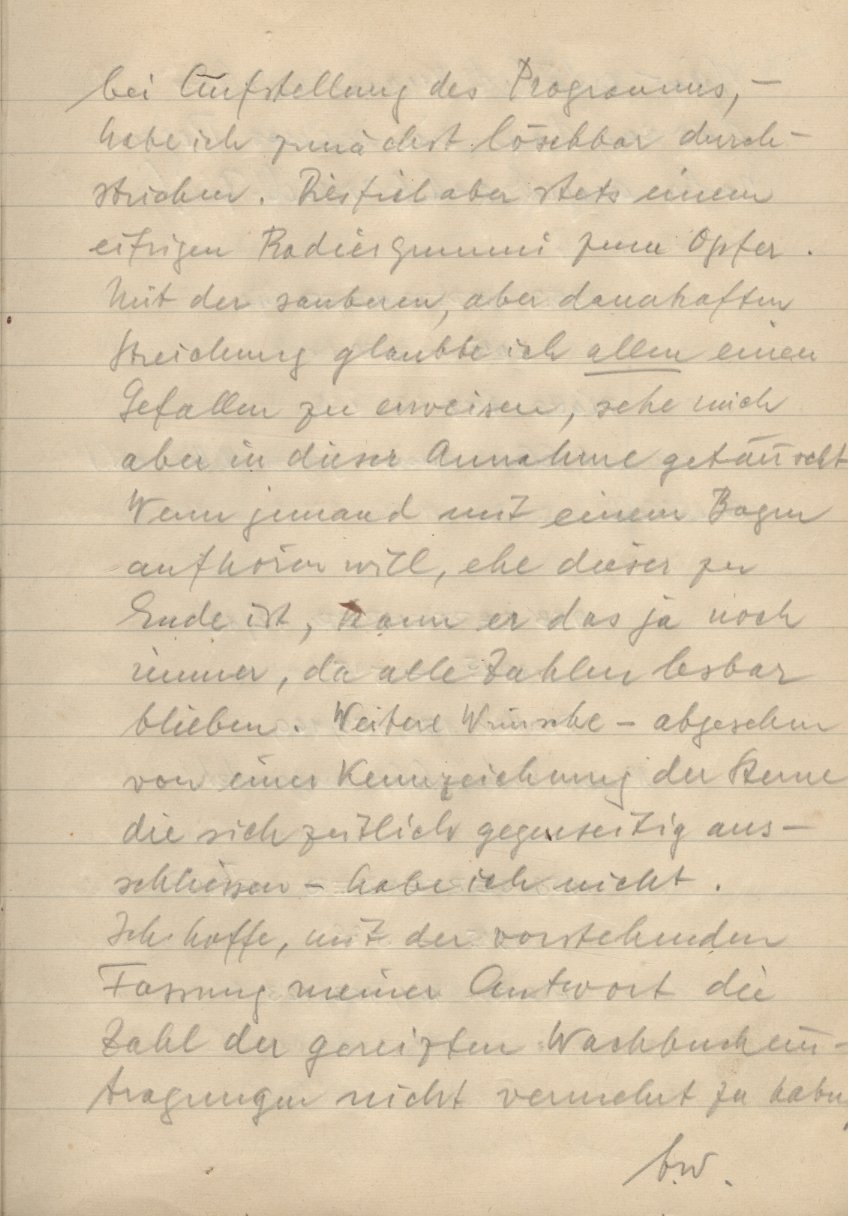 bei Aufstellung des Programms, –
habe ich zunächst löschbar durch-
strichen. Dies fiel aber stets einem
eifrigen Radiergummi zum Opfer.
Mit der sauberen, aber dauerhaften
Streichung glaubte ich allen einen
Gefallen zu erweisen, sehe mich
aber in dieser Annahme getäuscht
Wenn jemand mit einem Bogen
aufhören will, ehe dieser zu
Ende ist, kann er das ja noch
immer, da alle Zahlen lesbar
blieben. Weitere Wünsche – abgesehen
von einer Kennzeichnung der Sterne
die sich zeitlich gegenseitig aus-
schliessen – habe ich nicht.
Ich hoffe, mit der vorstehenden
Fassung meiner Antwort die
Zahl der gereizten Wachbuchein-
tragungen nicht vermehrt zu haben,